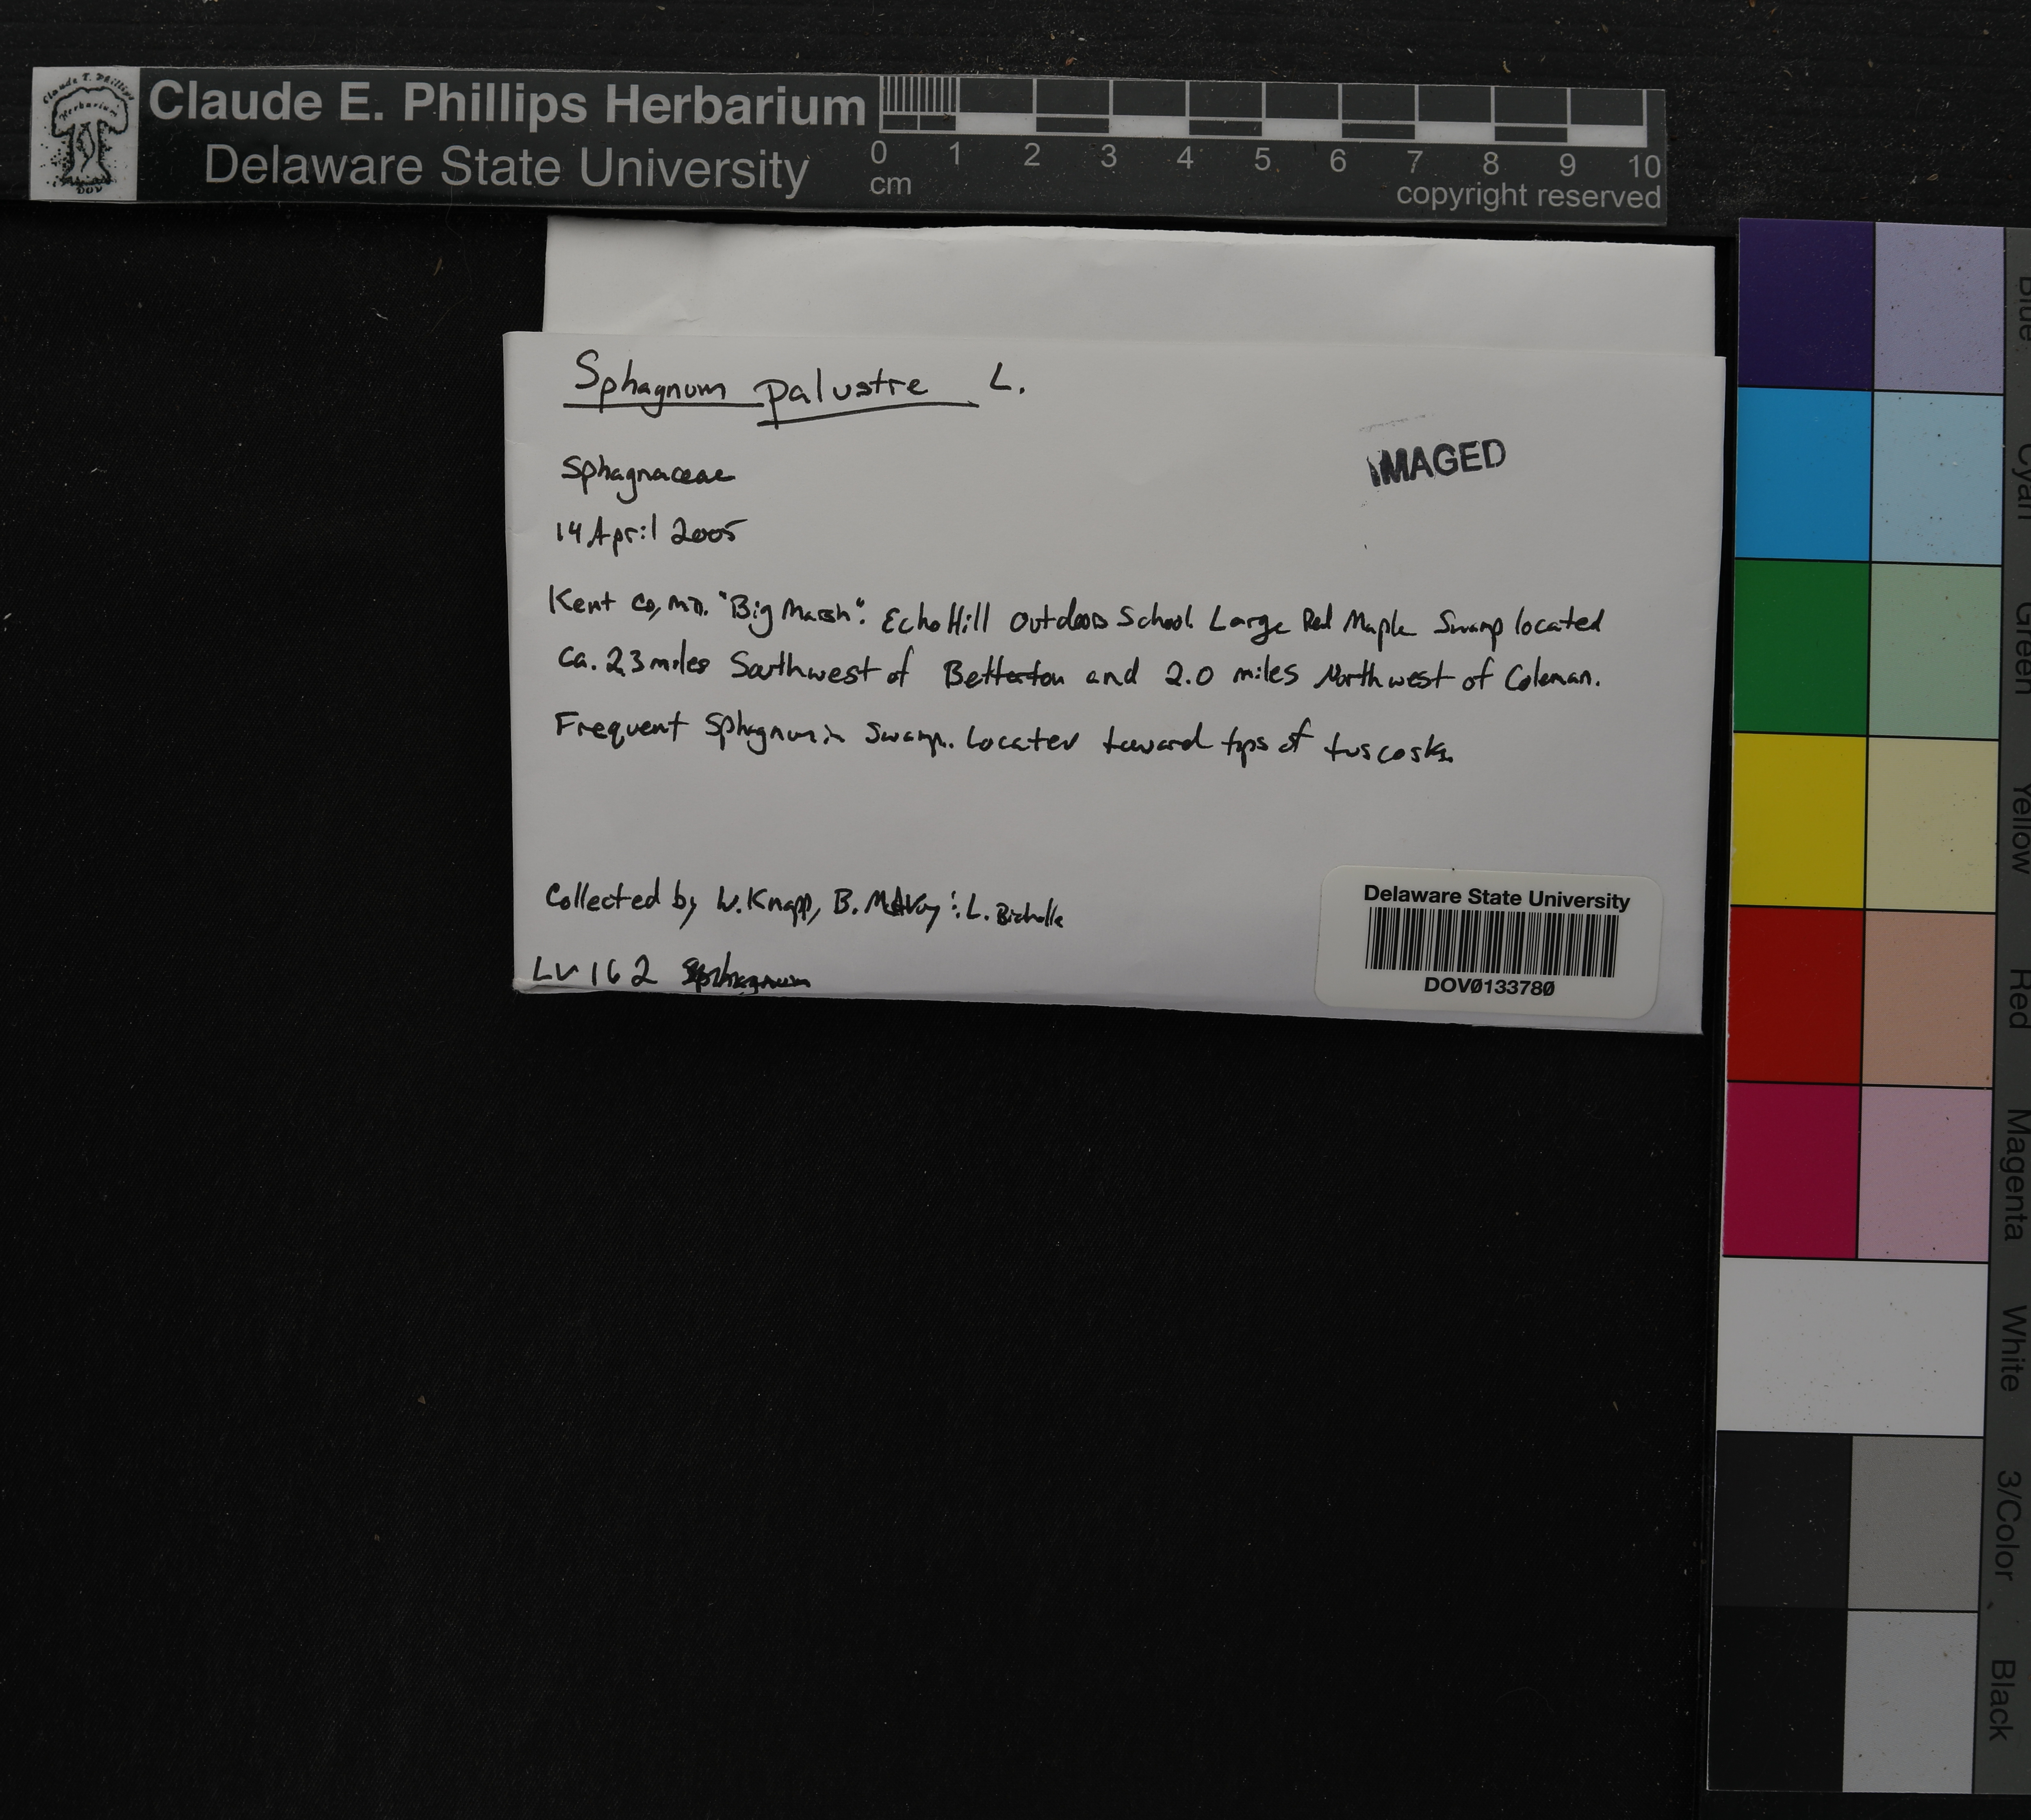 Claude E. Phillips Herbarium
Delaware State University
Claude E. Phillips
Herbarium
DOV
0 1 2 3 4 5 6 7 8 9 10
cm
copyright reserved
Sphagnum palustre L.
Sphagnaceae
IMAGED
14 April 2005
Kent Co, MD. "Big Marsh": Echo Hill Outdoors School Large Red Maple Swamp located
Ca. 2.3 miles Southwest of Betterton and 2.0 miles Northwest of Coleman.
Frequent Sphagnum in Swamp. Located toward tops of
Collected by W. Knapp, B. McAvoy : L.
162 Sphagnum
Delaware State University
DOV0133780
Blue
Cyan
Green
Yellow
Red
Magenta
White
3/Color
Black